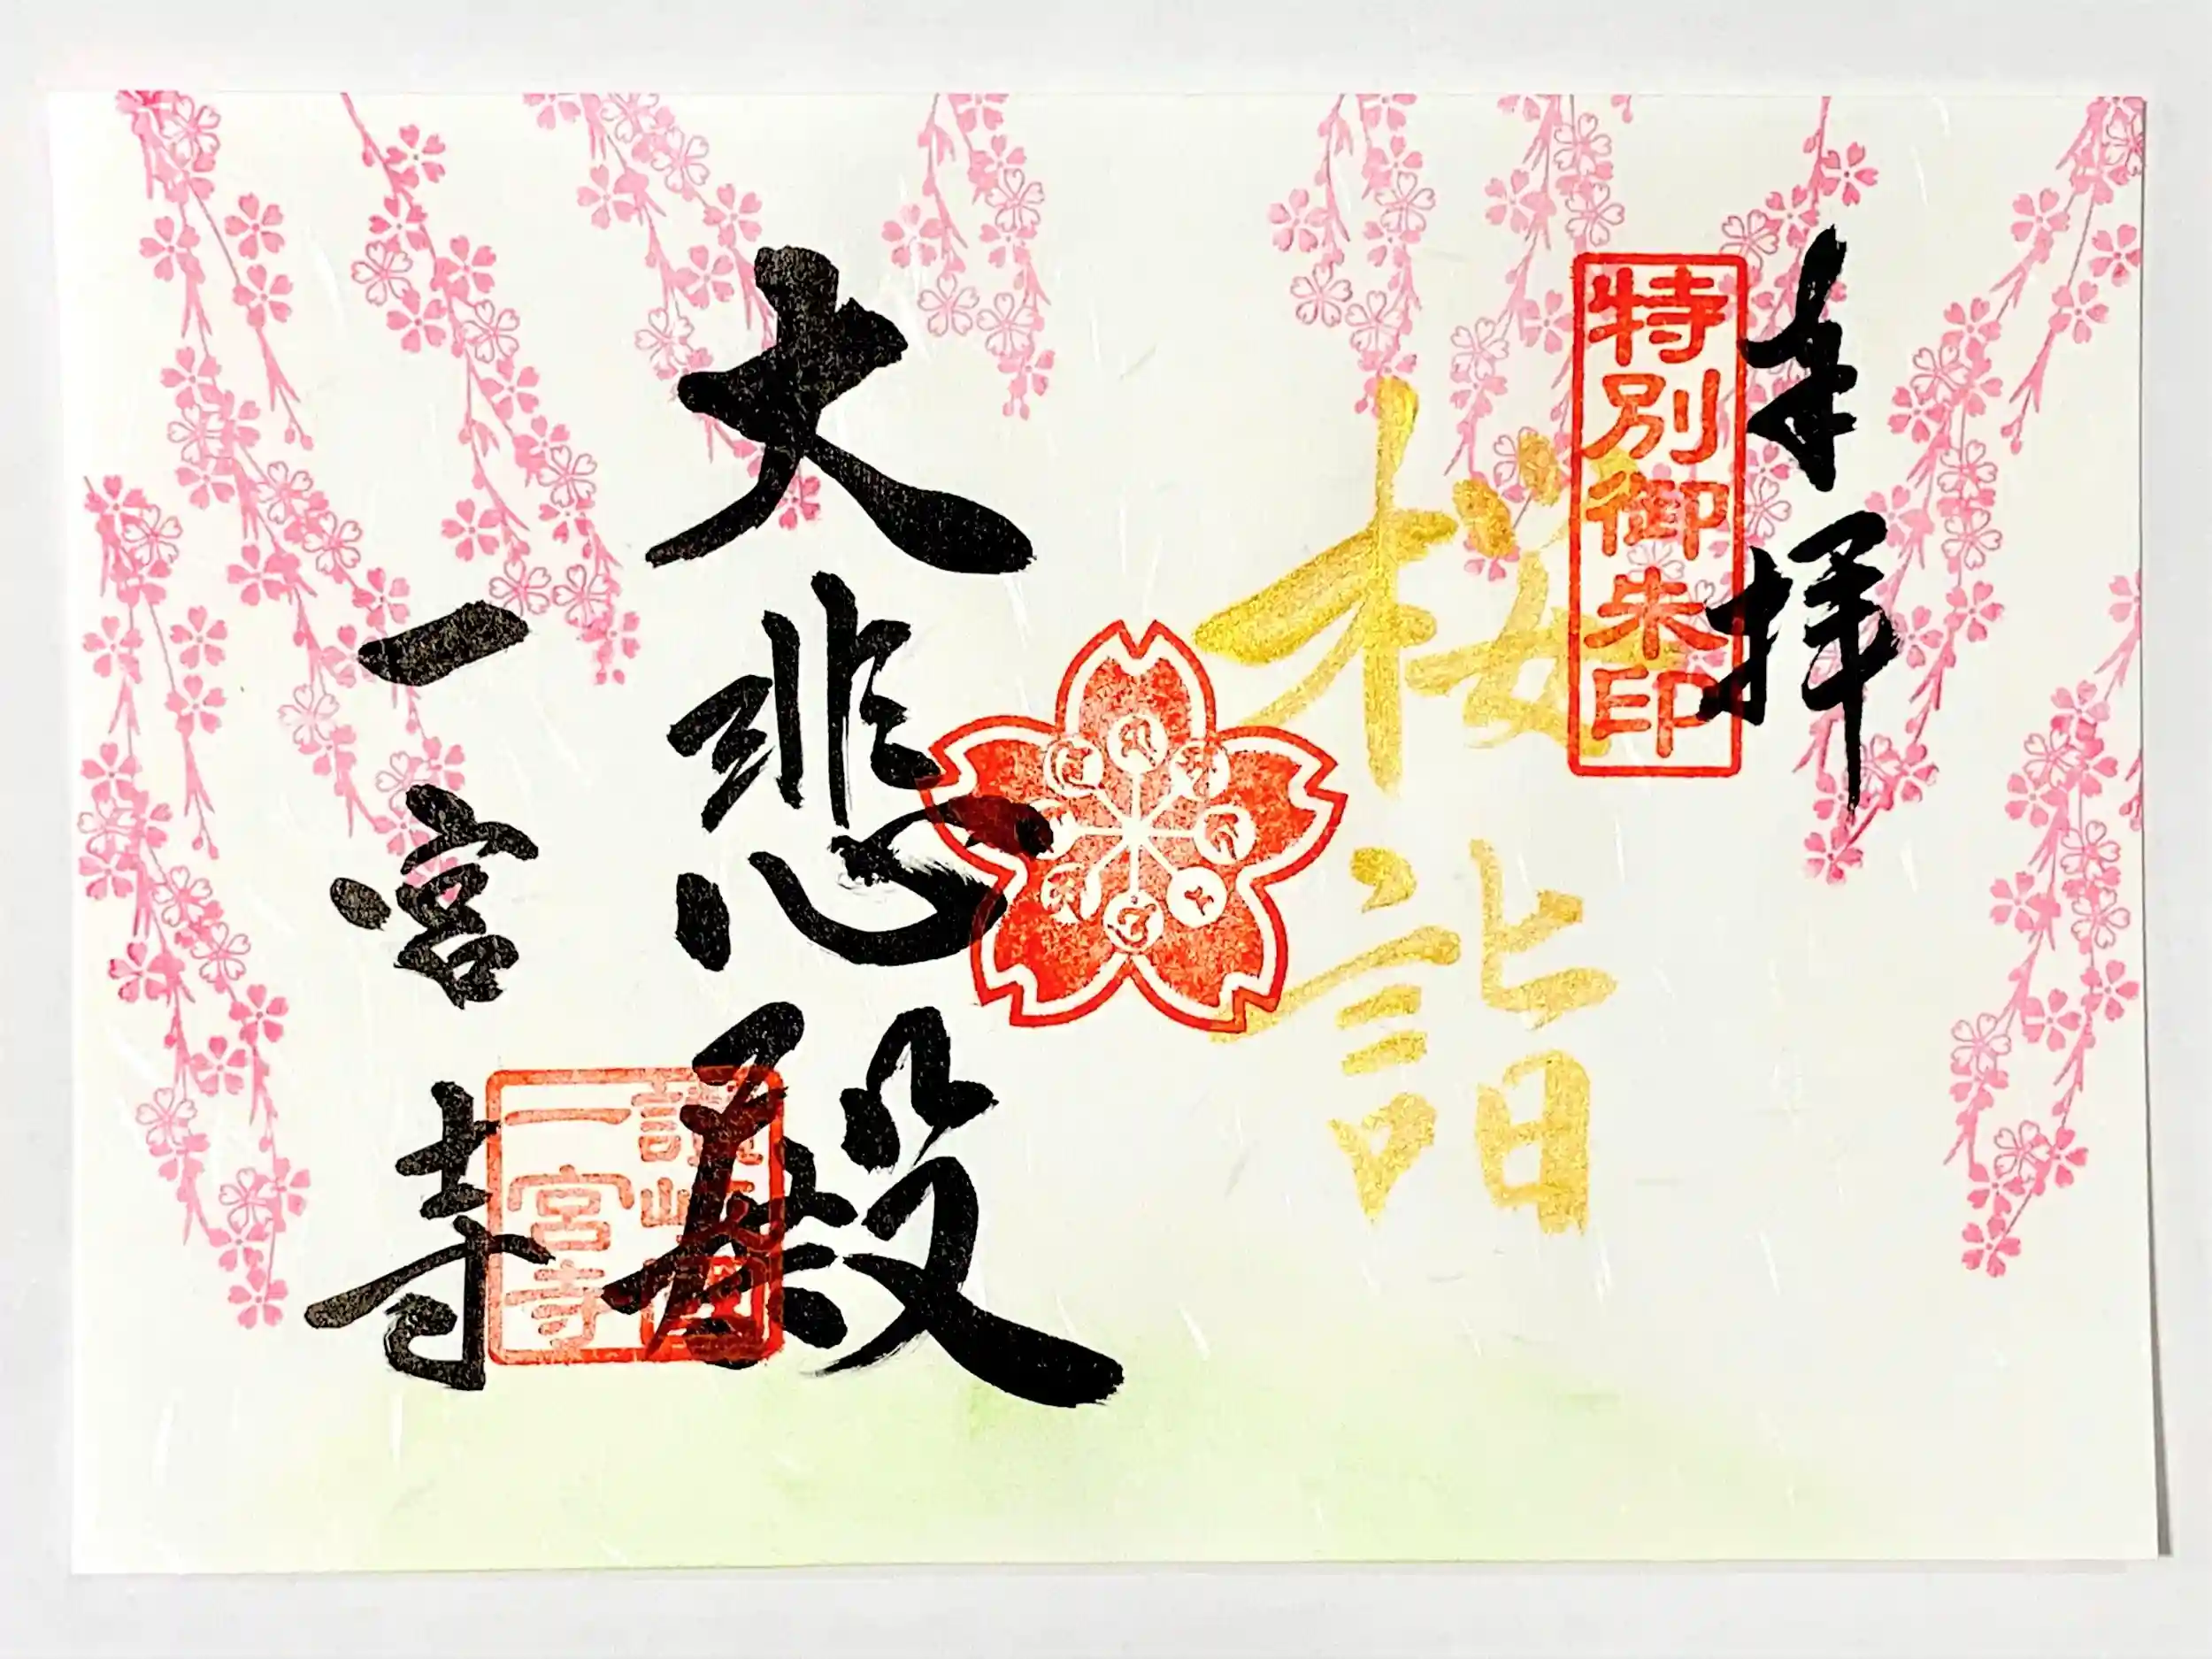 奉拝
特別御朱印
桜詣
大悲殿
一宮寺
一宮寺